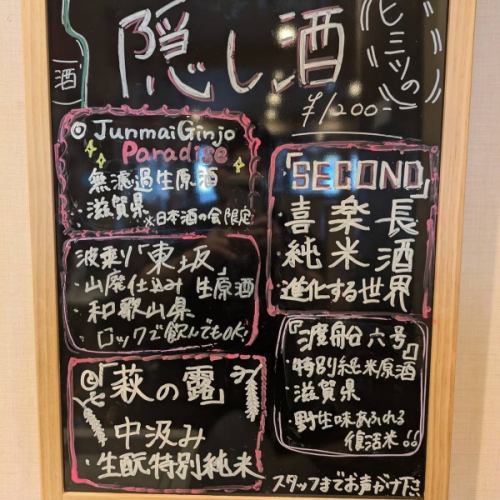 酒
隠し酒
ヒミツの
¥1,200-
◎ Junmai Ginjo
Paradise
無濾過生原酒
・滋賀県
※日本酒の会限定
「SECOND」
喜楽長
・純米酒
・進化する世界
波乗り「東坂」
・山廃仕込み 生原酒
・和歌山県
・ロックで飲んでもOK!
『渡船六号』
・特別純米原酒
・滋賀県
・野生味あふれる
復活米!!
「萩の露」
中汲み
・生酛特別純米
スタッフまでお声がけ下さ